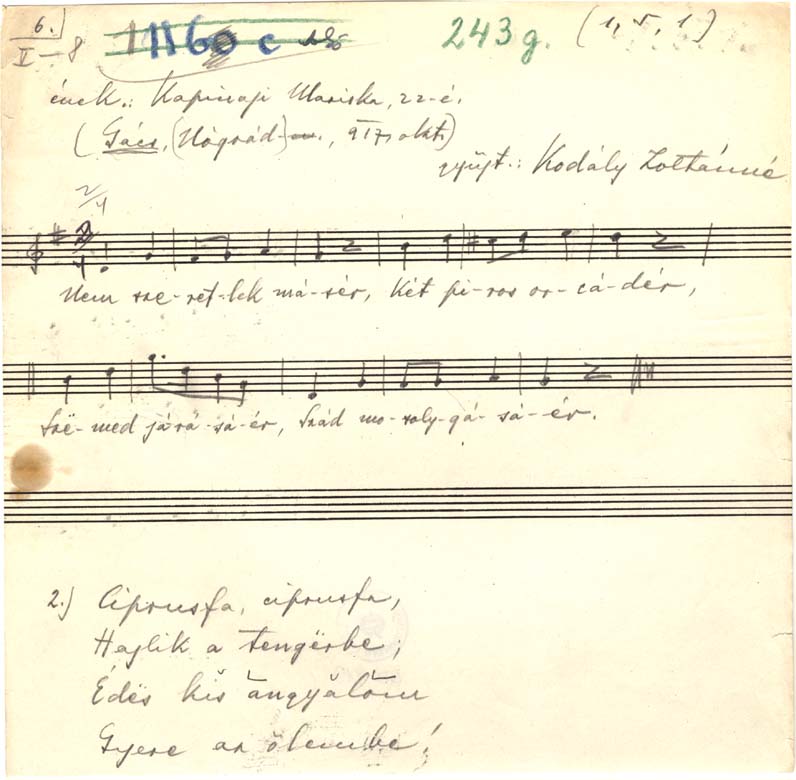 6.)
V—8
243g. (1, 5, 1)
ének.: Kapinaji Mariska, 22-é.
(Gács, (Nógrád) , 917, okt.)
gyüjt.: Kodály Zoltánné
2/4
2/4
Nem sze-ret-lek má-sér, Két pi-ros or-cá-dér,
Szë-med já-rá-sá-ér, Szád mo-soly-gá-sá-ér.
2.) Ciprusfa, ciprusfa,
Hajlik a tengërbe;
Édës kis angyalom
Gyere az ölembe!